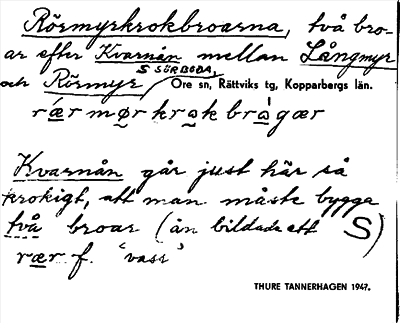 Rörmyrkrokbroarna, två bro-
ar efter Kvarnån mellan Långmyr
S SÖRBODA,
och Rörmyr / Ore sn, Rättviks tg, Kopparbergs län.
rær mør krok brågær
Kvarnån går just här så
krokigt, att man måste bygga
två broar (ån bildade ett S)
rær f. 'vass'
THURE TANNERHAGEN 1947.